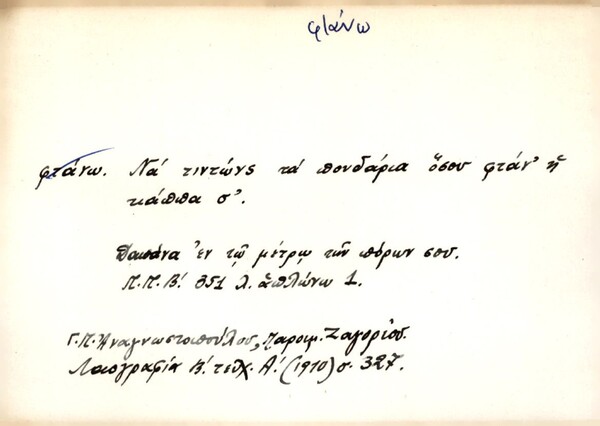 φτάνω
φτάνω. Νά τιντώνς τά πονδάρια ὅσου φτάν' ἡ
κάππα σ'.
Δαπάνα ἐν τῷ μέτρῳ τῶν πόρων σου.
Π.Π.Β! 351 λ. ἁπλώνω 1.
Γ.Π. Ἀναγνωστοπούλου, Παροιμ. Ζαγορίου.
Λαογραφία Β! τεύχ. Α! (1910) σ. 327.